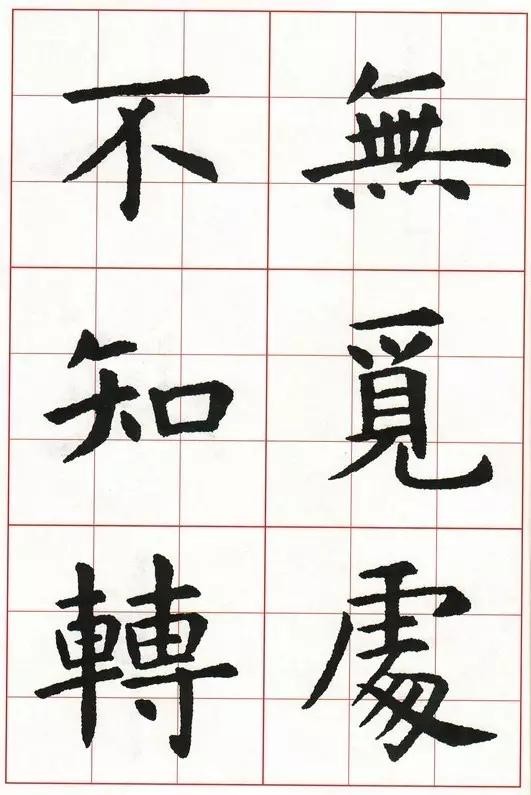 無覓處
不知轉